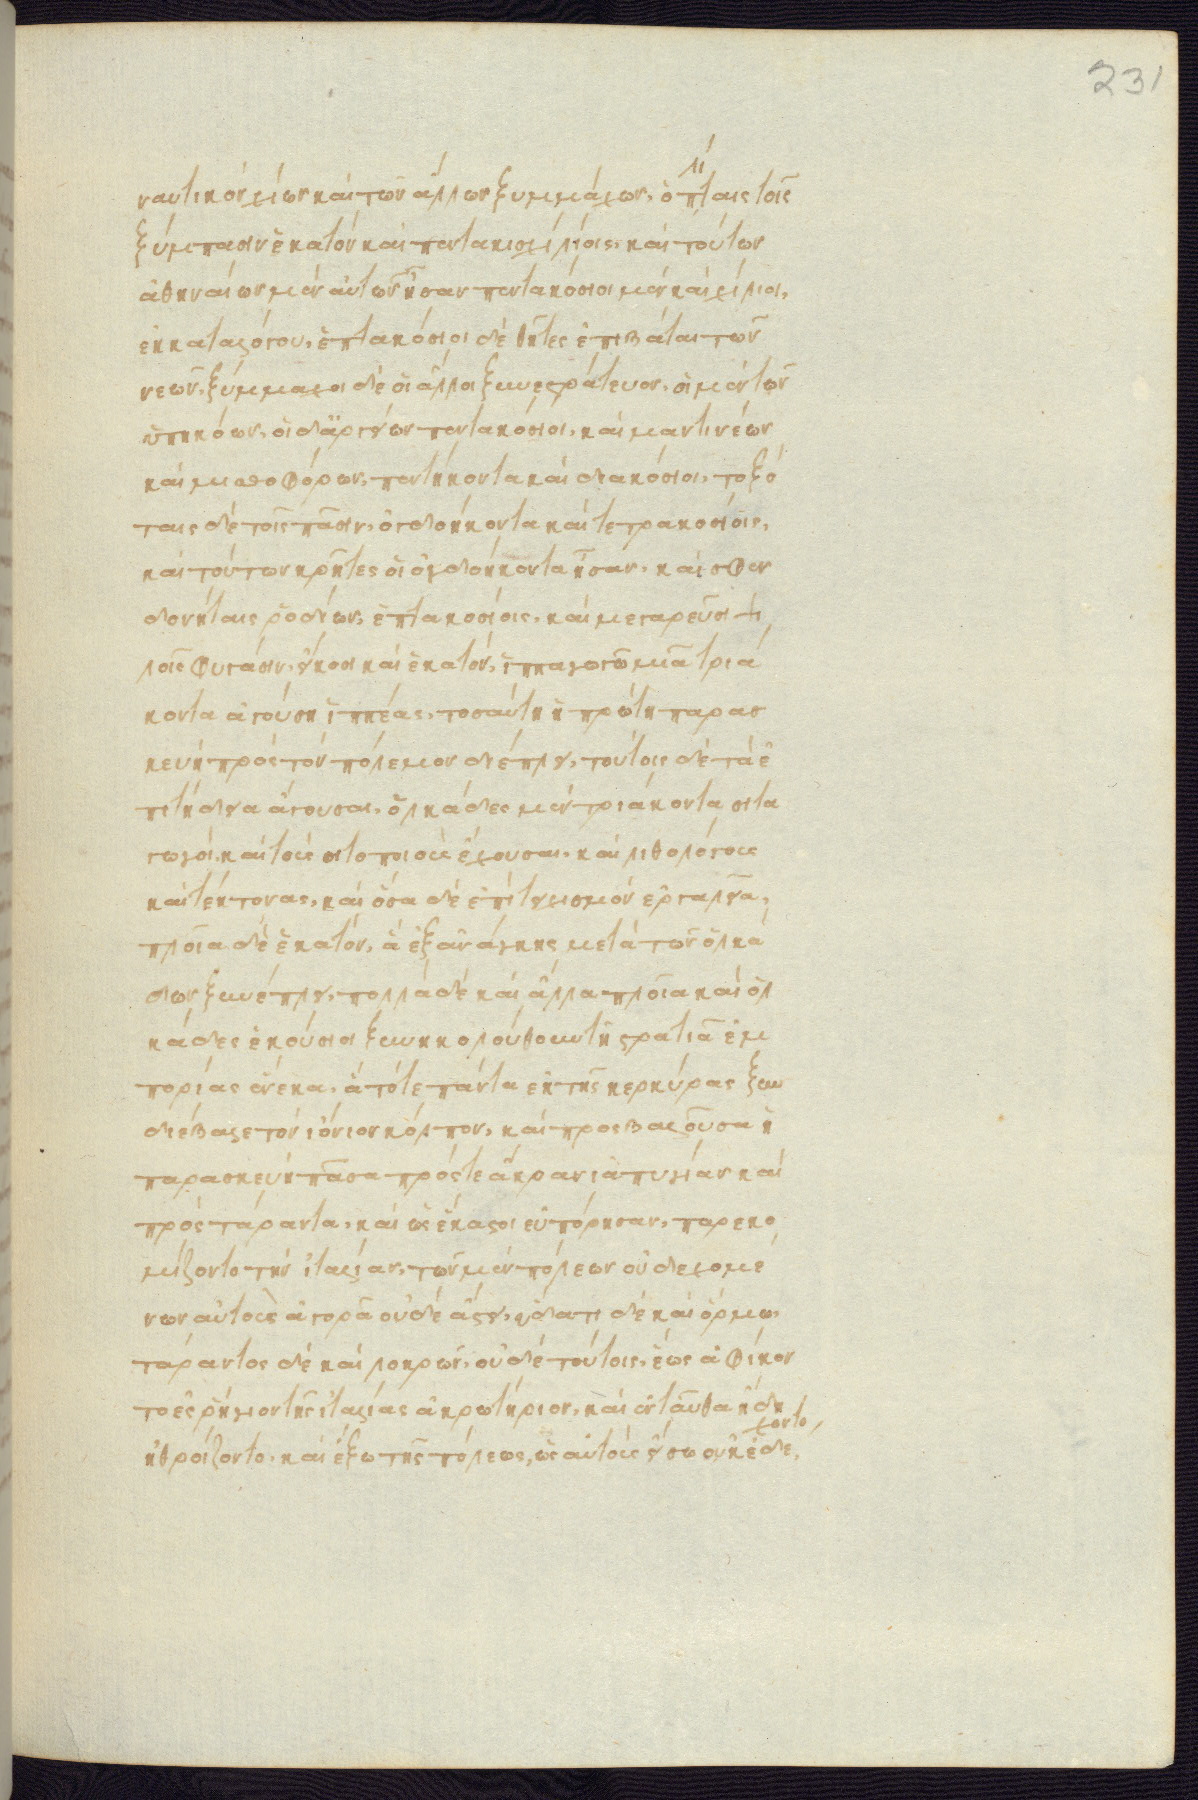 231
ναυτικόν χίων καὶ τῶν ἄλλων ξυμμάχων. ὁπλίταις τοῖς
ξύμπασιν ἑκατὸν καὶ πεντακισχιλίοις. καὶ τούτων
ἀθηναίων μὲν αὐτῶν ἦσαν πεντακόσιοι μὲν καὶ χίλιοι,
ἐκ καταλόγου, ἑπτακόσιοι δὲ θῆτες ἐπιβάται τῶν
νεῶν. ξύμμαχοι δὲ οἱ ἄλλοι ξυνεστράτευον, οἱ μὲν τῶν
ὑπηκόων, οἱ δ' ἀργείων πεντακόσιοι, καὶ μαντινέων
καὶ μισθοφόρων, πεντήκοντα καὶ διακόσιοι, τοξό
ταις δὲ τοῖς πᾶσιν, ὀγδοήκοντα καὶ τετρακοσίοις,
καὶ τούτων κρῆτες οἱ ὀγδοήκοντα ἦσαν, καὶ σφεν
δονήταις ῥοδίων, ἑπτακοσίοις, καὶ μεγαρεῦσι ψι
λοῖς φυγάσιν, εἴκοσι καὶ ἑκατόν, ἱππαγωγῶ μιᾶ τριά
κοντα ἀγούση ἱππέας, τοσαύτη ἡ πρώτη παρασ
κευὴ πρὸς τὸν πόλεμον διέπλει, τούτοις δὲ τὰ ἐ
πιτήδεια ἄγουσαι, ὁλκάδες μὲν τριάκοντα σιτα
γωγοί, καὶ τοὺς σιτοποιοὺς ἔχουσαι, καὶ λιθολόγους
καὶ τέκτονας, καὶ ὅσα δὲ ἐπὶ τειχισμὸν ἐργαλεῖα,
πλοῖα δὲ ἑκατόν, ἃ ἐξ ἀνάγκης μετὰ τῶν ὁλκά
δων ξυνέπλει, πολλὰ δὲ καὶ ἄλλα πλοῖα καὶ ὁλ
κάδες ἑκούσιοι ξυνηκολούθουν τῆ στρατιᾶ ἐμ
πορίας ἕνεκα, ἃ τότε πάντα ἐκ τῆς κερκύρας ξυν
διέβαλε τὸν ἰόνιον κόλπον, καὶ προσβαλοῦσα ἡ
παρασκευὴ πᾶσα πρός τε ἄκραν ἰαπυγίαν καὶ
πρὸς τάραντα, καὶ ὡς ἕκαστοι εὐπόρησαν, παρεκο
μίζοντο τὴν ἰταλίαν, τῶν μὲν πόλεων οὐ δεχομέ
νων αὐτοὺς ἀγορᾶ οὐδὲ ἄστει, ὕδατι δὲ καὶ ὅρμω,
τάραντος δὲ καὶ λοκρῶν, οὐδὲ τούτοις, ἕως ἀφίκον
το ἐς ῥήγιον τῆς ἰταλίας ἀκρωτήριον, καὶ ἐνταῦθα ἤδη
ἠθροίζοντο, καὶ ἔξω τῆς πόλεως, ὡς αὐτοὺς εἴσω οὐκ ἐδέχοντο,